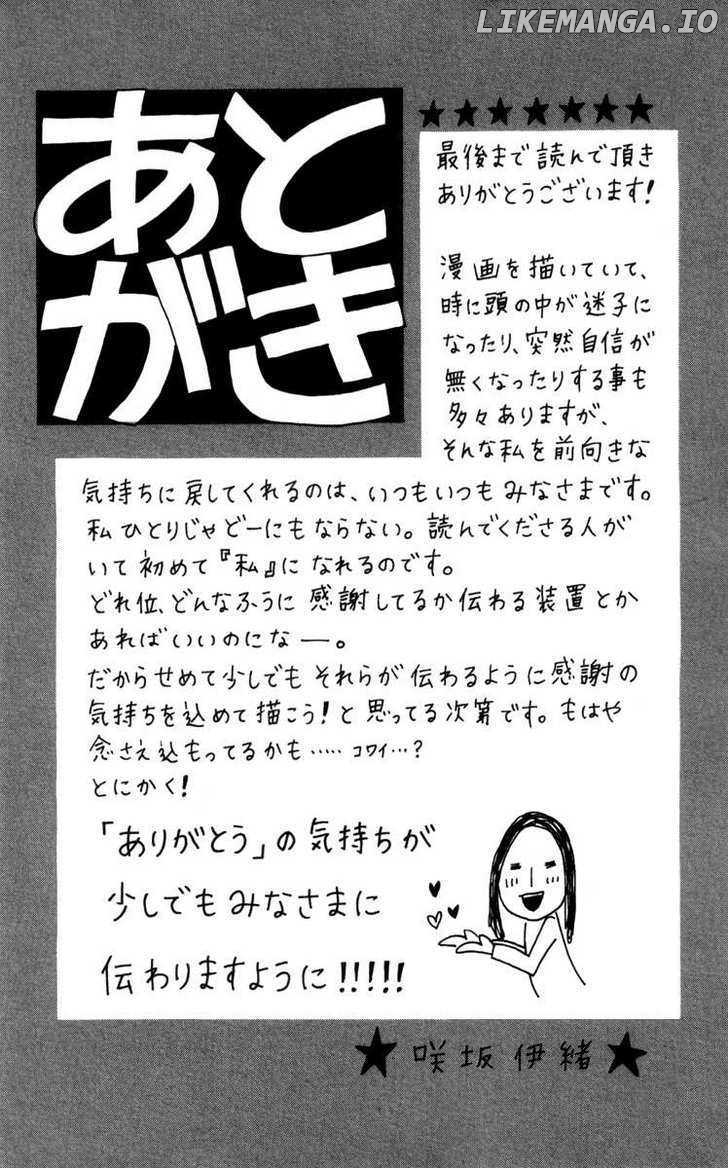 LIKEMANGA.IO
あと
がき
最後まで読んで頂き
ありがとうございます!
漫画を描いていて、
時に頭の中が迷子に
なったり、突然自信が
無くなったりする事も
多々ありますが、
そんな私を前向きな
気持ちに戻してくれるのは、いつもいつもみなさまです。
私ひとりじゃどーにもならない。読んでくださる人が
いて初めて『私』になれるのです。
どれ位、どんなふうに感謝してるか伝わる装置とか
あればいいのになー。
だからせめて少しでもそれらが伝わるように感謝の
気持ちを込めて描こう!と思ってる次第です。もはや
念さえ込もってるかも……コワイ…?
とにかく!
「ありがとう」の気持ちが
少しでもみなさまに
伝わりますように!!!!!
★咲坂伊緒★